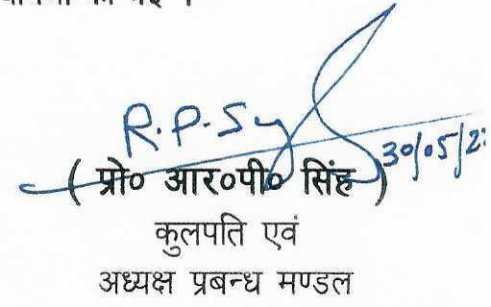 R.P.Sy
30/05/2
( प्रो० आर०पी० सिंह )
कुलपति एवं
अध्यक्ष प्रबन्ध मण्डल